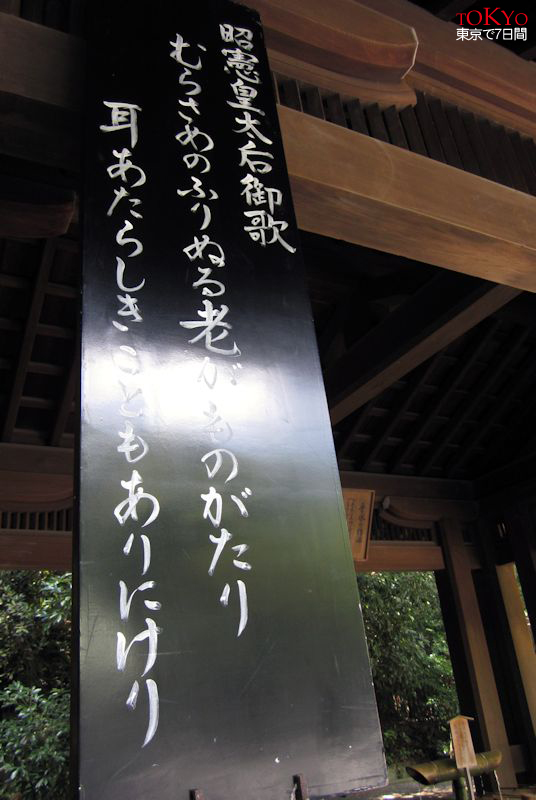 TOKYO
東京で7日間
昭憲皇太后御歌
むらさめのふりぬる老がものがたり
耳あたらしきこともありにけり